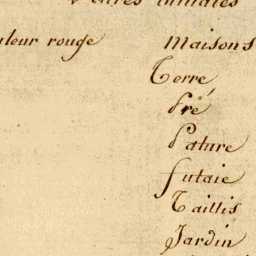 initiales
uleur rouge Maisons
Terre
Pré
Pature
futaie
Taillis
Jardin